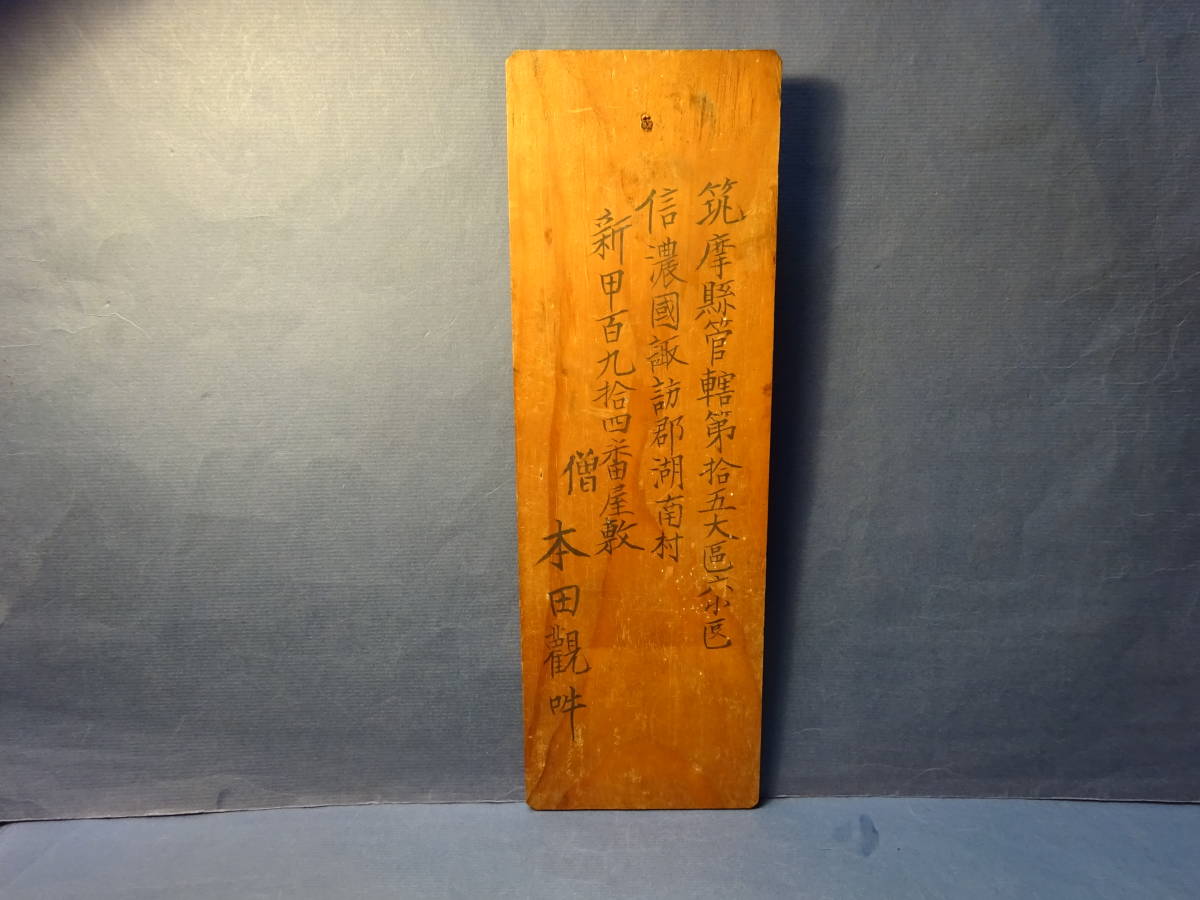 筑摩縣管轄第拾五大區六小区
信濃國諏訪郡湖南村
新甲百九拾四番屋敷
僧
本田觀吽